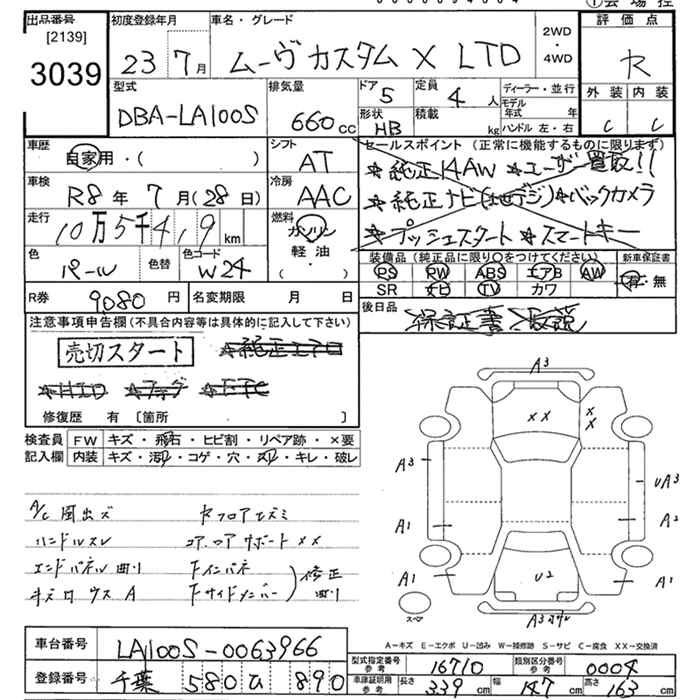 出品番号
[2139]
3039
初度登録年月
23 7月
車名・グレード
ムーヴ カスタム X LTD
2WD
・
4WD
評価点
R
外装 内装
C C
型式
DBA-LA100S
排気量
660cc
ドア
5
定員
4人
形状
HB
積載
kg
ディーラー・並行
モデル
年式 年
ハンドル 左・右
車歴
自家用・( )
シフト
AT
セールスポイント (正常に機能するものに限ります)
★純正14AW ★ユーザー買取!!
★純正ナビ(地デジ)★バックカメラ
★プッシュスタート ★スマートキー
車検
R8年 7月(28日)
冷房
AAC
走行
10万5千4,9 km
燃料
ガソリン
軽油
・
色
パール
色替
色コード
W24
装備品 (純正品に限り○をつけてください)
PS PW ABS エアB AW
SR ナビ TV カワ
新車保証書
有・無
R券
9080円
名変期限 月 日
後日品
保証書 取説
注意事項申告欄(不具合内容等は具体的に記入して下さい)
売切スタート
★純正エアロ
★HID ★フォグ ★ETC
修復歴 有 [箇所 ]
検査員
記入欄
FW キズ・飛石・ヒビ割・リペア跡・×要
内装 キズ・汚れ・コゲ・穴・スレ・キレ・破レ
A/C 風出ズ
ハンドルスレ
エンドパネル 曲り
キズ ロウス A
R フロアユガミ
コアロアサポート XX
Fインパネ
Fサイドメンバー
修正
曲り
A3
XX
XX
A3
UA3
A1
A2
A1
A1
U2
スペア
A3
A-キズ E-エクボ U-凹み W-補修跡 S-サビ C-腐食 XX-交換済
車台番号
LA100S-0063966
登録番号
千葉 580 ひ 890
型式指定番号
参考
16710
類別区分番号
参考
0004
車庫証明用
参考
長さ 339cm
幅 147cm
高さ 163cm